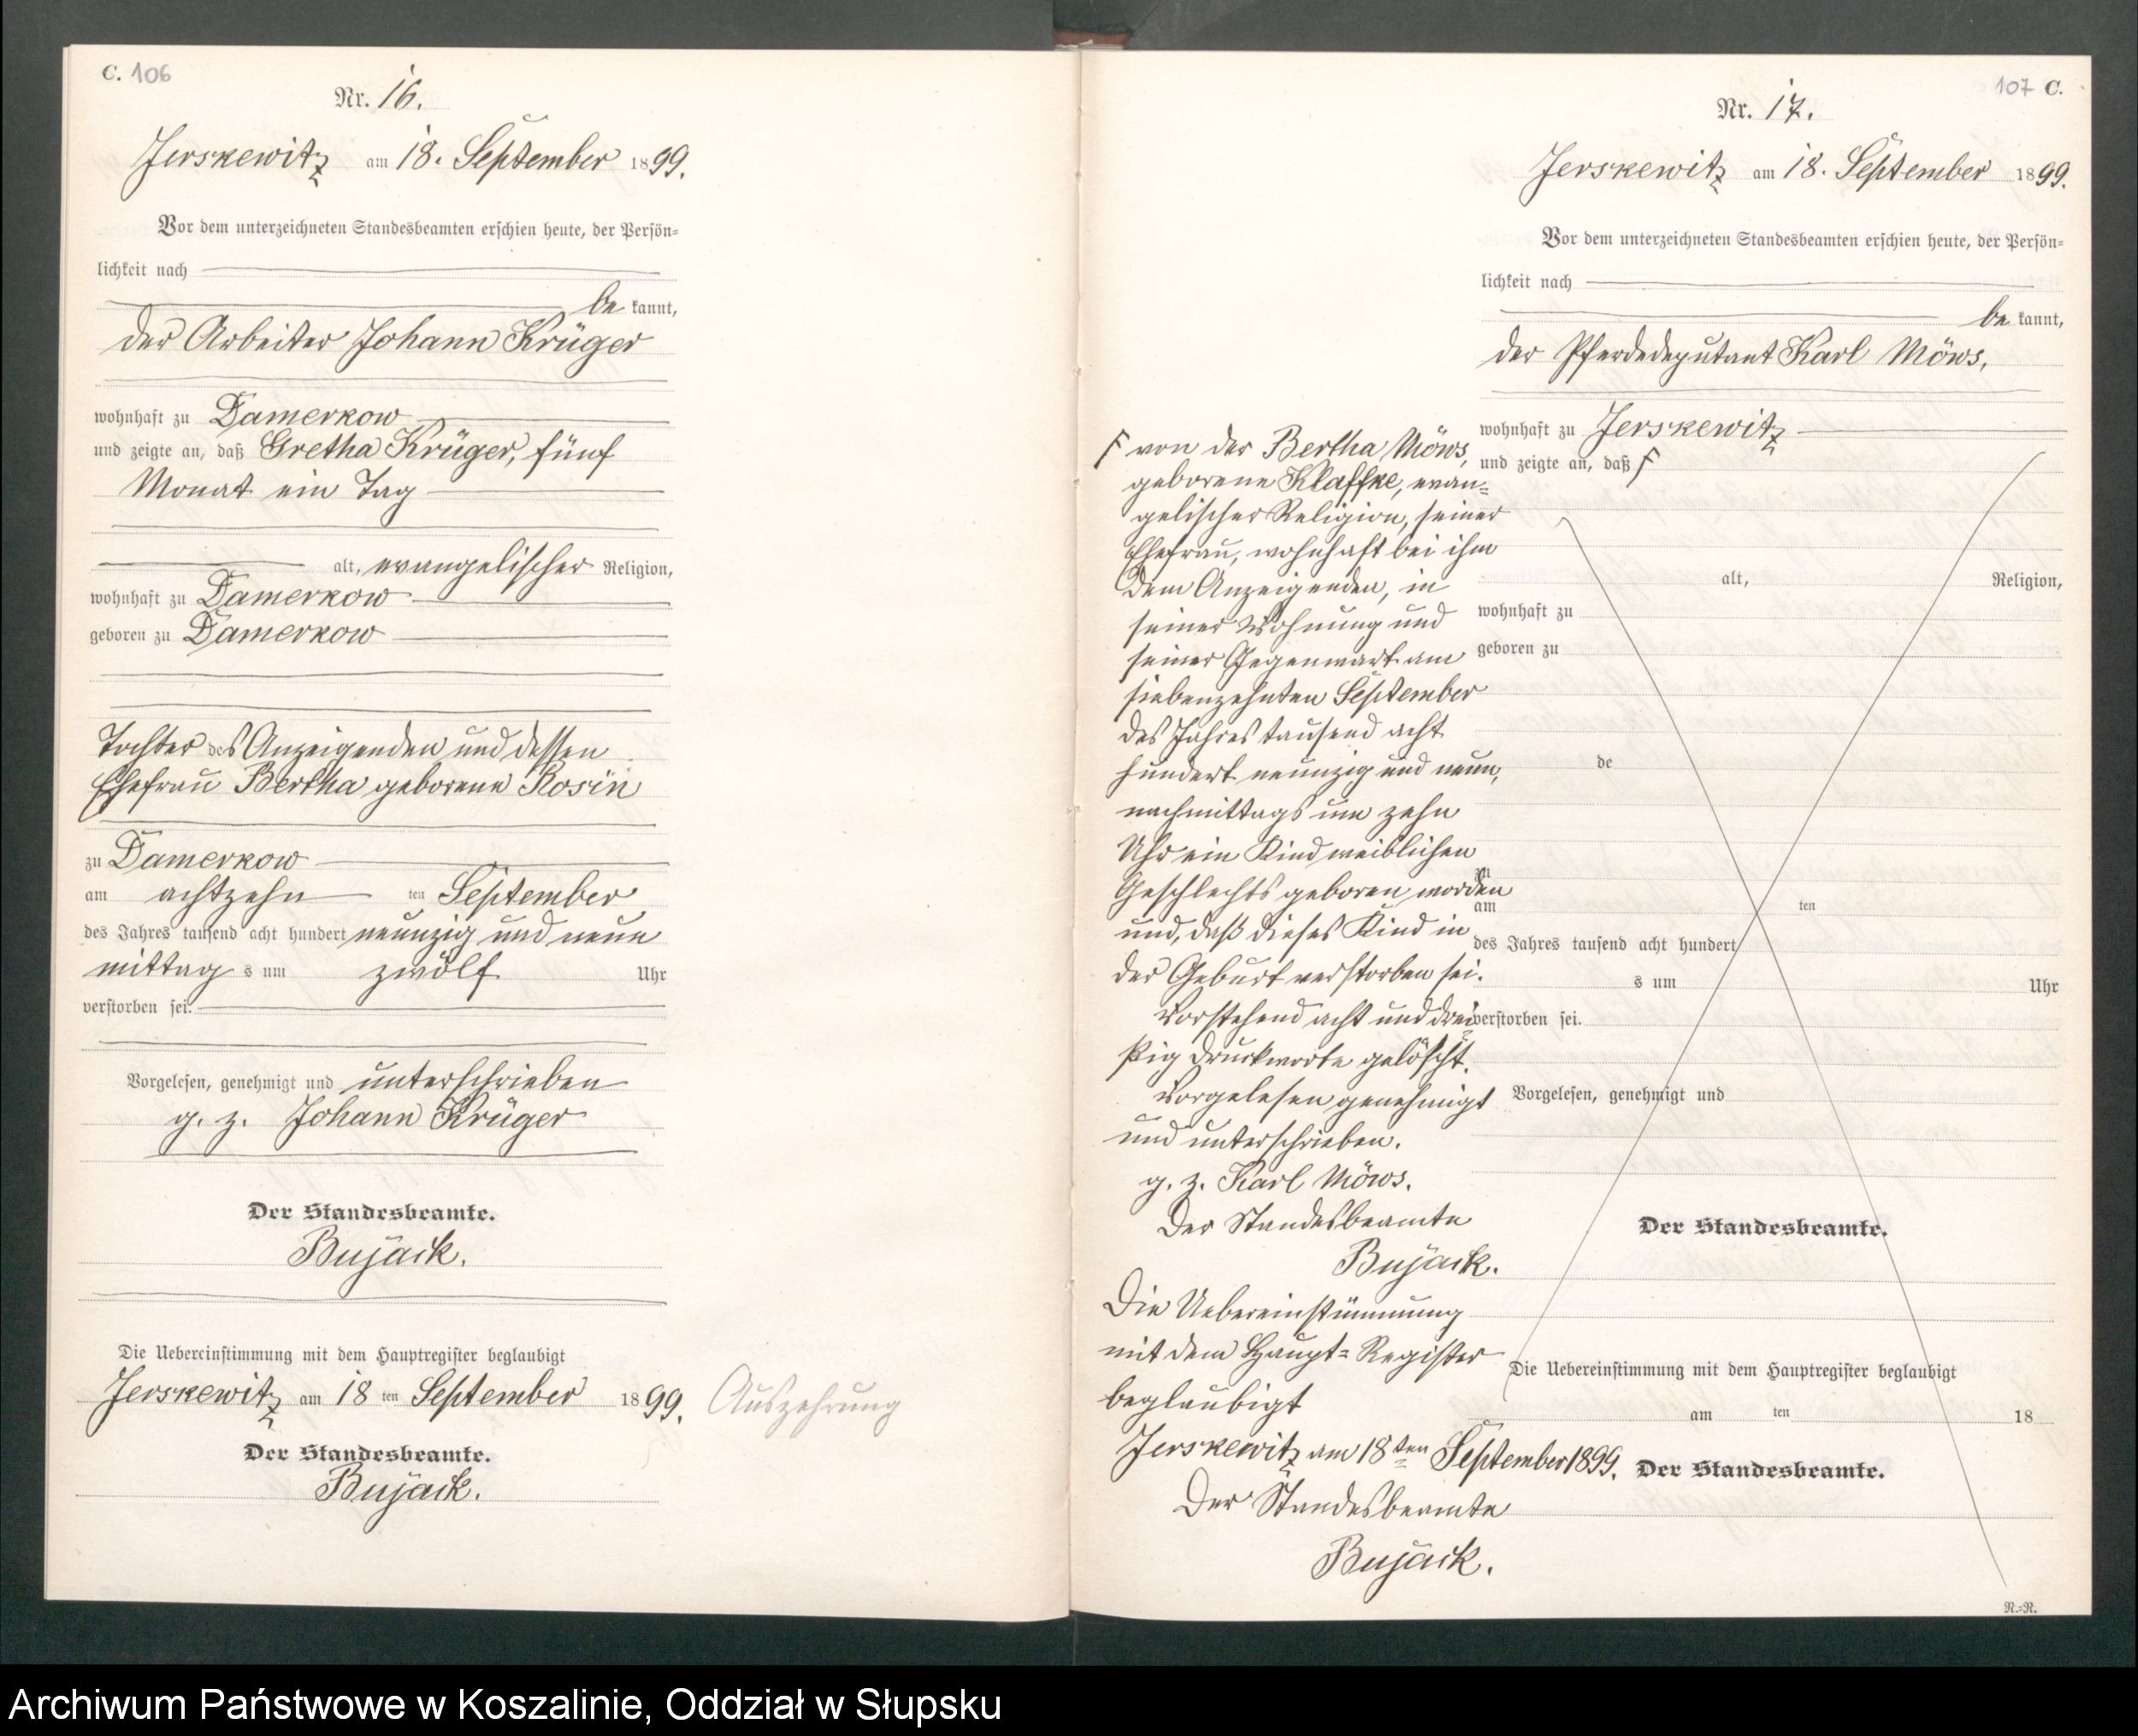 C. 106
Nr. 16.
Jerskewitz am 18. September 1899.
Vor dem unterzeichneten Standesbeamten erschien heute, der Persön=
lichkeit nach
be kannt,
der Arbeiter Johann Krüger
wohnhaft zu Damerkow
und zeigte an, daß Gretha Krüger, fünf
Monat ein Tag
alt, evangelischer Religion,
wohnhaft zu Damerkow
geboren zu Damerkow
Tochter des Anzeigenden und dessen
Ehefrau Bertha geborene Rosin
zu Damerkow
am achtzehn ten September
des Jahres tausend acht hundert neunzig und neun
mittag s um zwölf Uhr
verstorben sei.
Vorgelesen, genehmigt und unterschrieben
g. z. Johann Krüger
Der Standesbeamte.
Bujack.
Die Uebereinstimmung mit dem Hauptregister beglaubigt
Jerskewitz am 18 ten September 1899.
Auszehrung
Der Standesbeamte.
Bujack.
107 C.
Nr. 17.
Jerskewitz am 18. September 1899.
Vor dem unterzeichneten Standesbeamten erschien heute, der Persön=
lichkeit nach
be kannt,
der Pferdedeputant Karl Möws,
wohnhaft zu Jerskewitz
und zeigte an, daß F
F von der Bertha Möws,
geborene Klaffke, evan=
gelischer Religion, seiner
Ehefrau, wohnhaft bei ihm
dem Anzeigenden, in
seiner Wohnung und
seiner Gegenwart am
siebenzehnten September
des Jahres tausend acht
hundert neunzig und neun,
nachmittags um zehn
Uhr ein Kind weiblichen
Geschlechts geboren worden
und, daß dieses Kind in
der Geburt verstorben sei.
Vorstehend acht und drei
ßig Druckworte gelöscht.
Vorgelesen genehmigt
und unterschrieben.
g. z. Karl Möws.
Der Standesbeamte
Bujack.
Die Uebereinstimmung
mit dem Haupt=Register
beglaubigt
Jerskewitz am 18ten September 1899.
Der Standesbeamte
Bujack.
alt, Religion,
wohnhaft zu
geboren zu
de
zu
am ten
des Jahres tausend acht hundert
s um Uhr
verstorben sei.
Vorgelesen, genehmigt und
Der Standesbeamte.
Die Uebereinstimmung mit dem Hauptregister beglaubigt
am ten 18
Der Standesbeamte.
R.=R.
Archiwum Państwowe w Koszalinie, Oddział w Słupsku